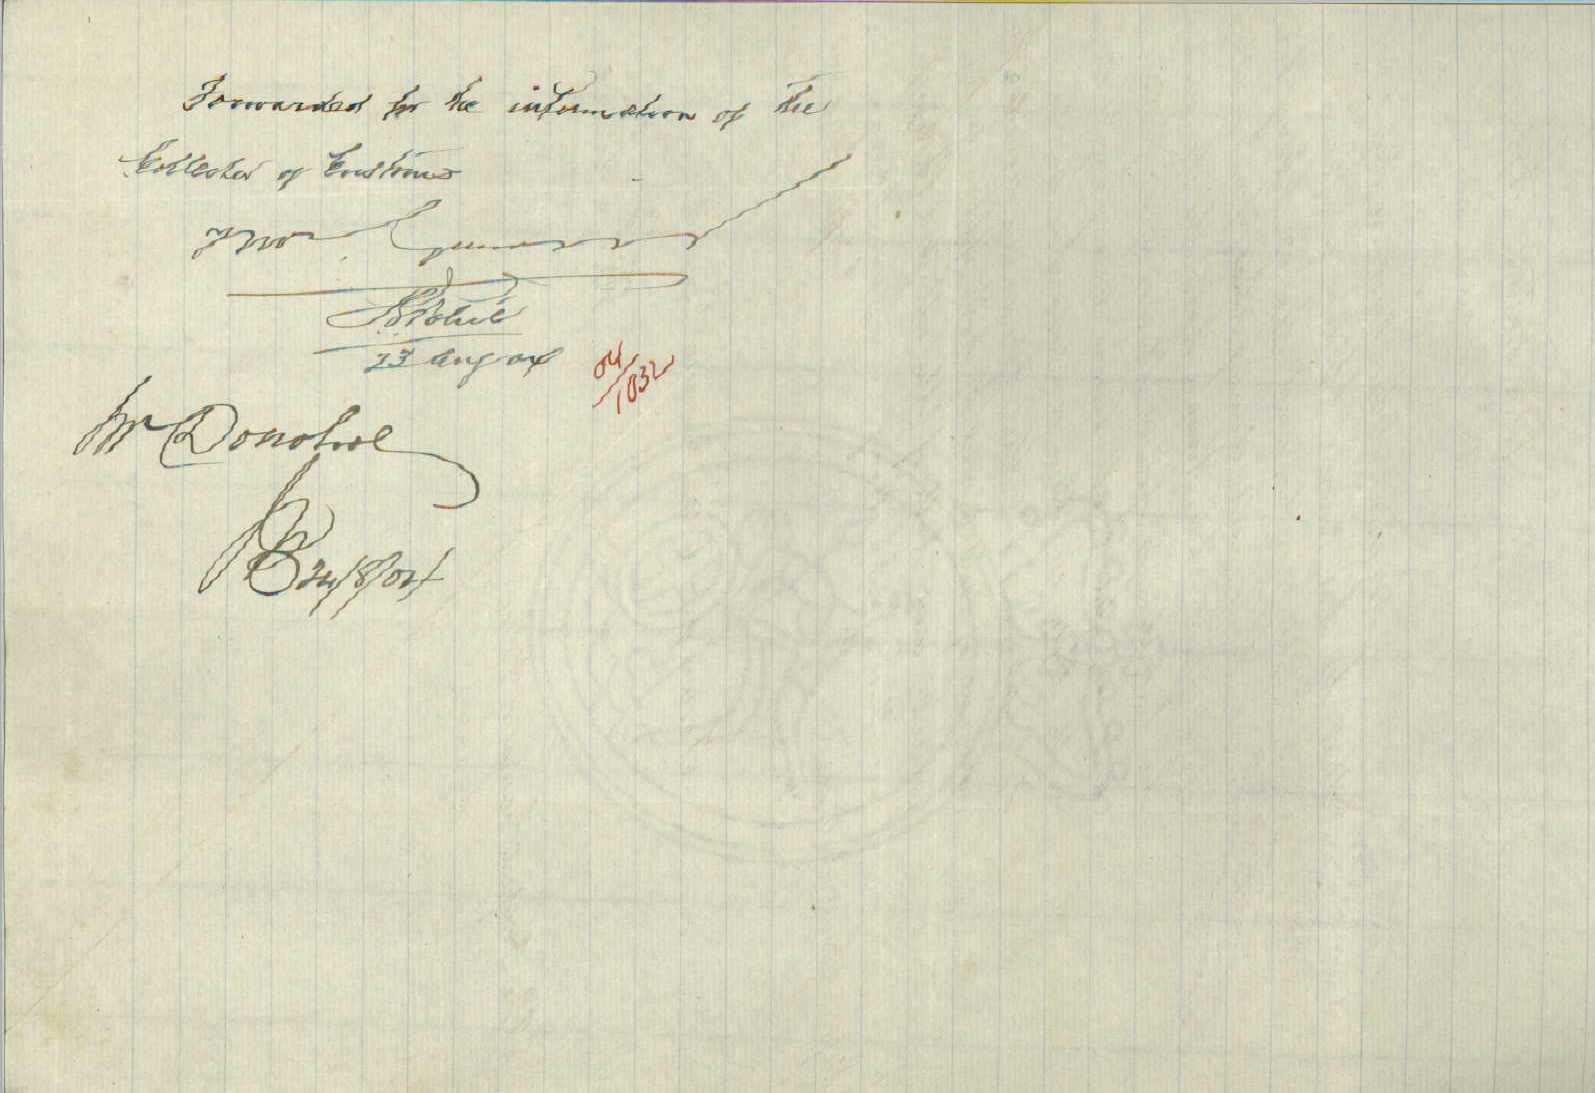 Forwarded for the information of the
Collector of Customs
Jno
23 Aug 04
04/1032
Mr Donohoe
24/8/04